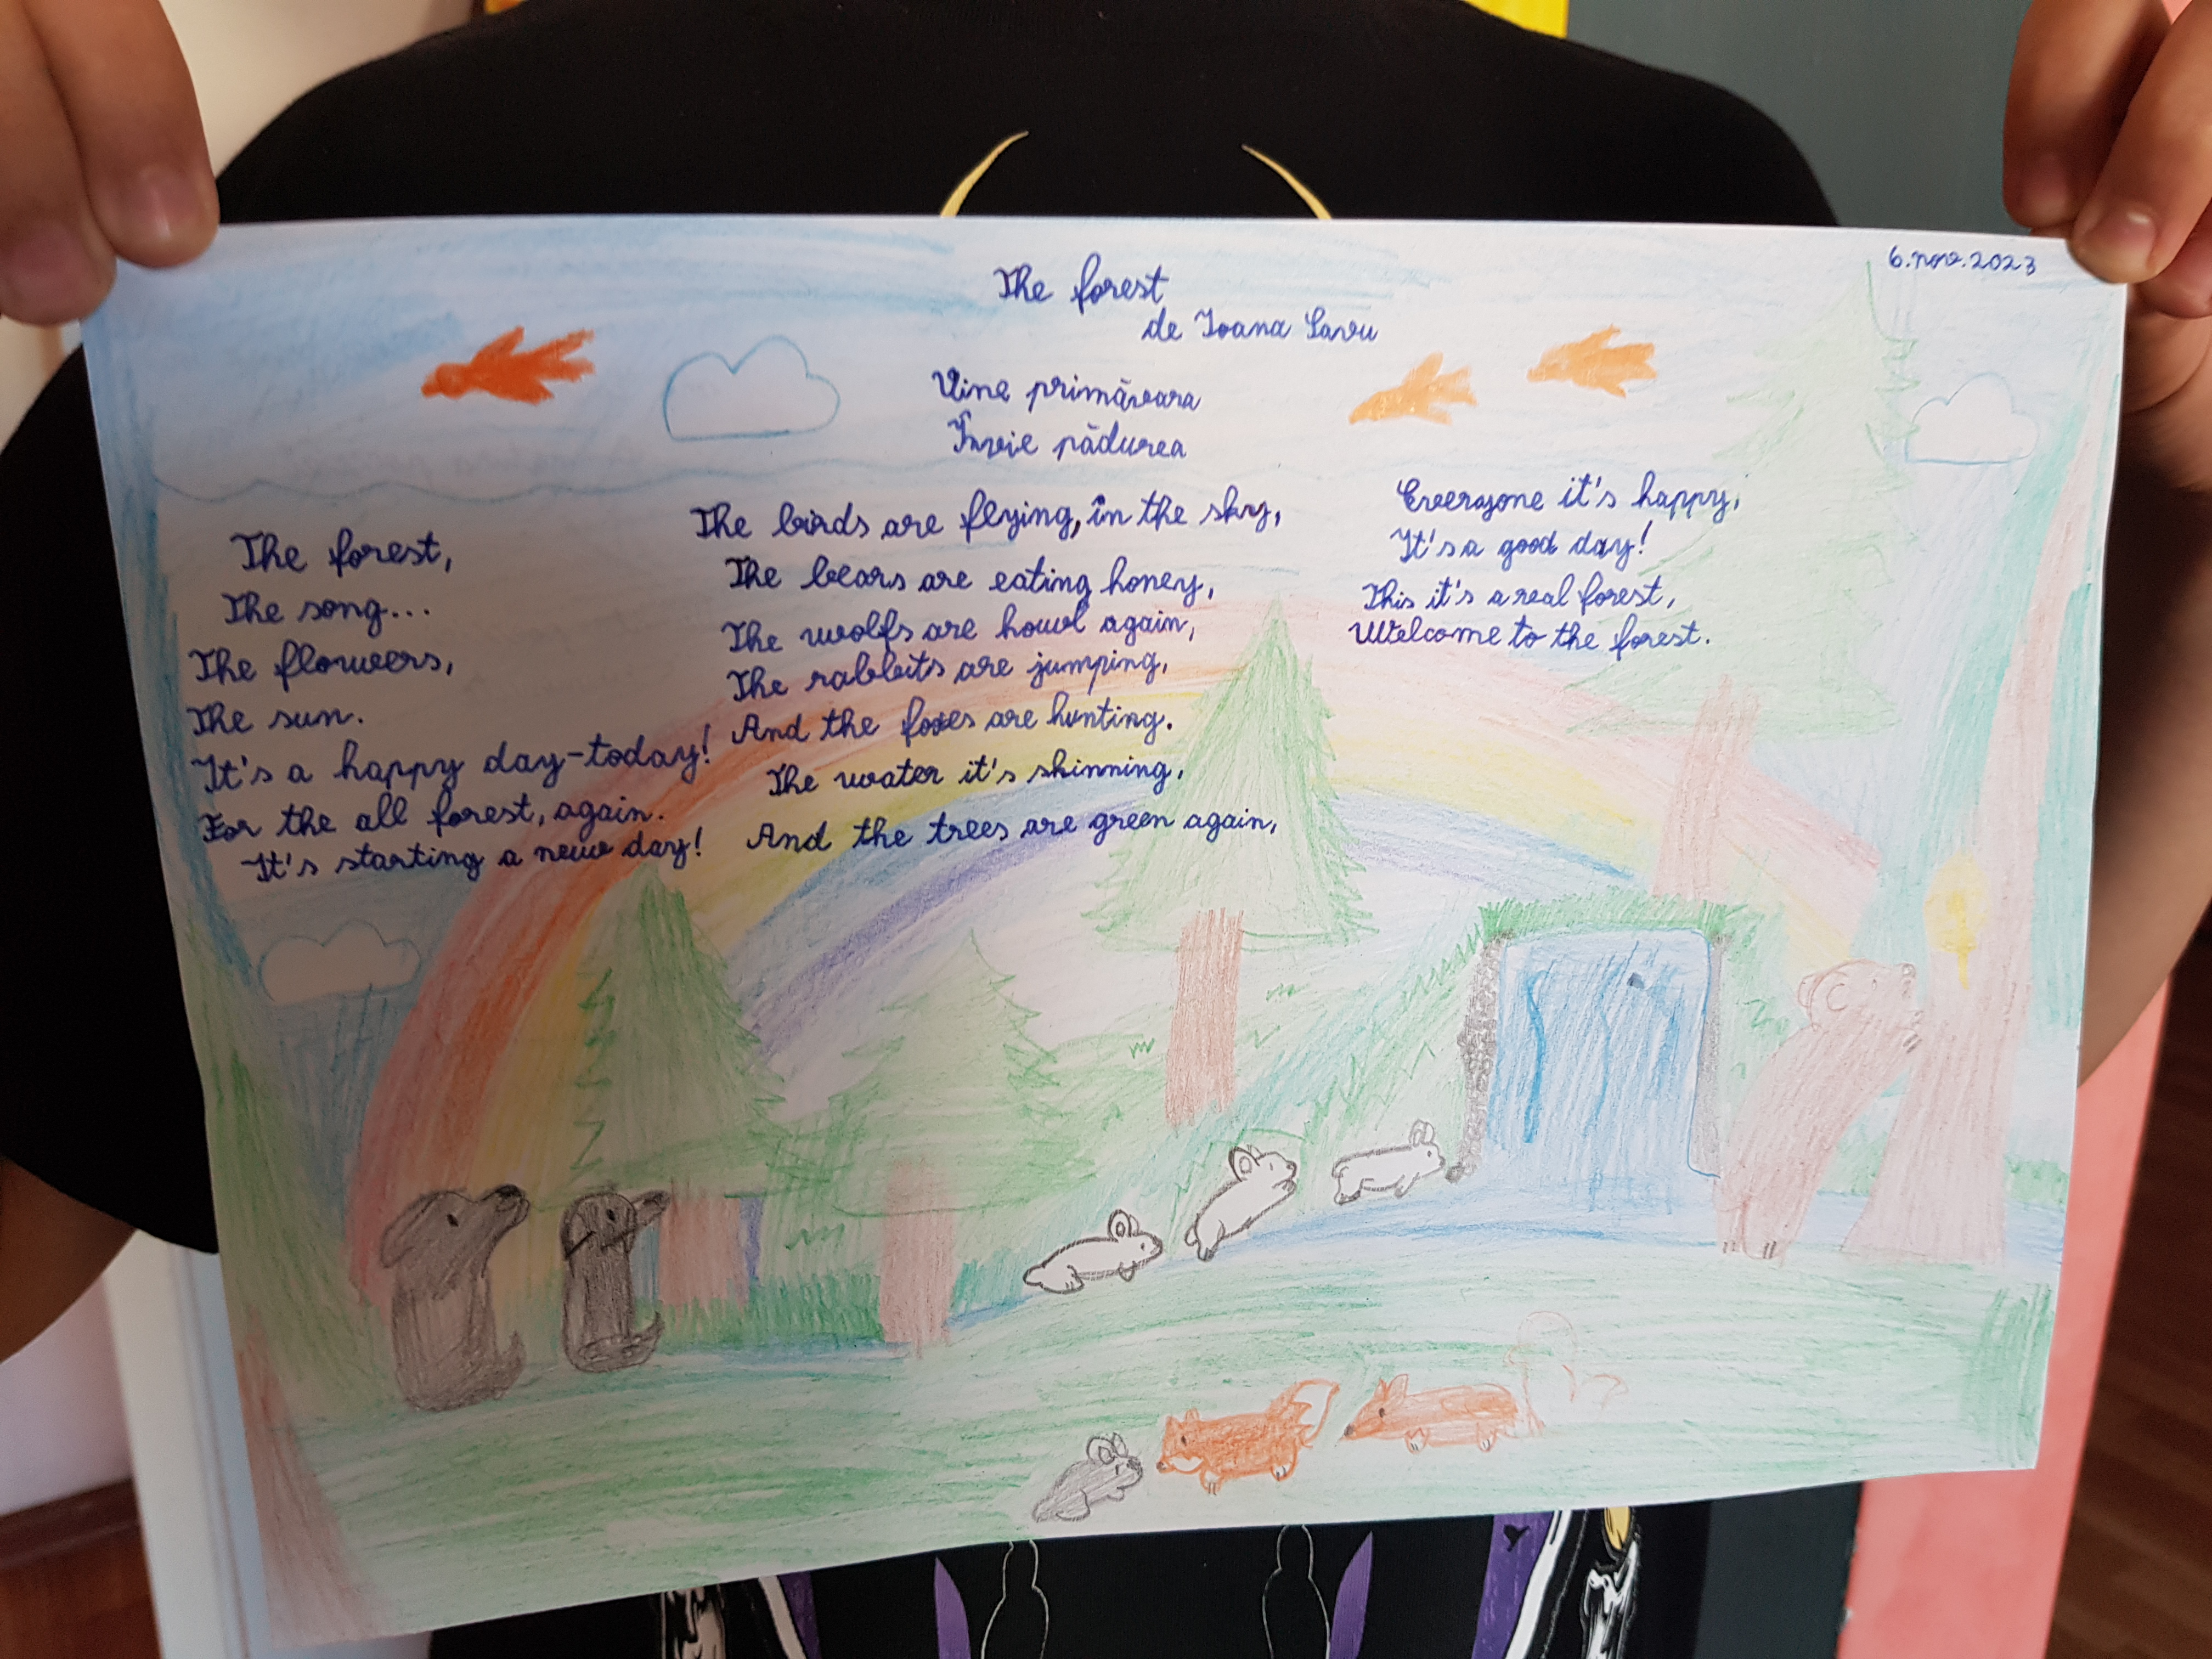 6.nov.2023
The forest
de Ioana Savu
Vine primăvara
Învie pădurea
The forest,
The song...
The flowers,
The sun.
It's a happy day-today!
For the all forest, again.
It's starting a new day!
The birds are flying, în the sky,
The bears are eating honey,
The wolfs are howl again,
The rabbits are jumping,
And the foxes are hunting.
The water it's shinning,
And the trees are green again,
Everyone it's happy,
It's a good day!
This it's a real forest,
Welcome to the forest.